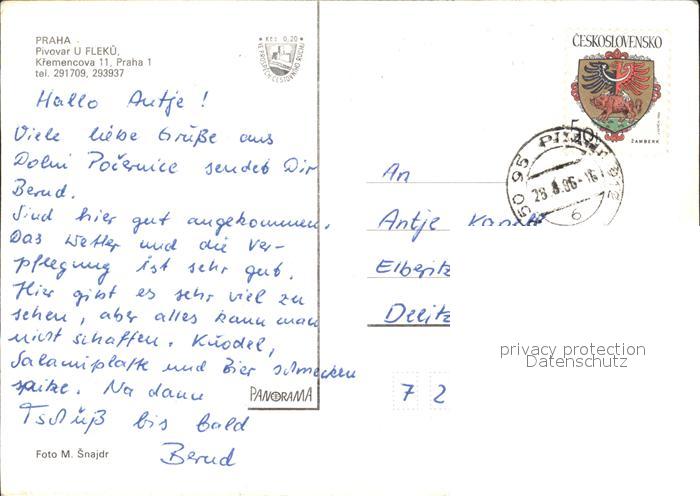 PRAHA
Pivovar U FLEKŮ,
Křemencova 11, Praha 1
tel. 291709, 293937
Kčs 0,20
VE PROSPĚCH CESTOVNÍHO RUCHU
Hallo Antje !
Viele liebe Grüße aus
Dolni Počernice sendet Dir
Bernd.
Sind hier gut angekommen.
Das Wetter und die Ver-
pflegung ist sehr gut.
Hier gibt es sehr viel zu
sehen, aber alles kann man
nicht schaffen. Knödel,
Salamiplatte und Bier schmecken
spitze. Na dann
Tschüß bis bald
Bernd
PANORAMA
Foto M. Šnajdr
ČESKOSLOVENSKO
50
ŽAMBERK
PRAHA
28.8.86-16
6
An
Antje
Elberitz
Delitz
7 2
privacy protection
Datenschutz